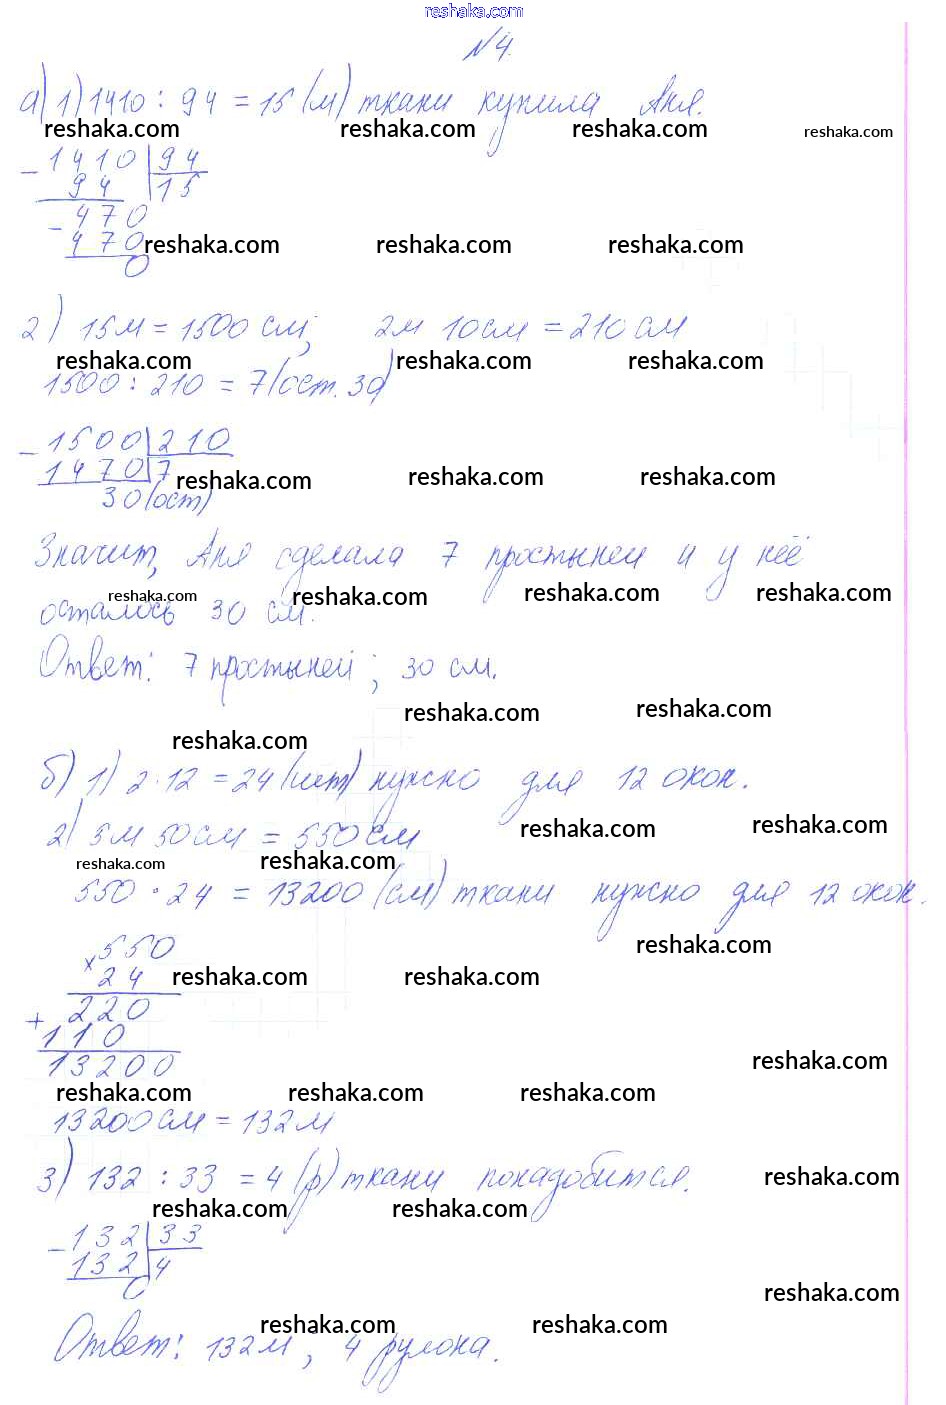 reshaka.com
№ 4.
а) 1) 1410 : 94 = 15 (м) ткани купила Аня.
reshaka.com reshaka.com reshaka.com reshaka.com
- 1410 | 94
94 | 15
- 470
470 reshaka.com reshaka.com reshaka.com
0
2) 15 м = 1500 см; 2 м 10 см = 210 см
reshaka.com reshaka.com reshaka.com
1500 : 210 = 7 (ост. 30)
- 1500 | 210
1470 | 7 reshaka.com reshaka.com reshaka.com
30 (ост)
Значит, Аня сделала 7 простыней и у неё
reshaka.com reshaka.com reshaka.com reshaka.com
осталось 30 см.
Ответ: 7 простыней; 30 см.
reshaka.com reshaka.com
reshaka.com
б) 1) 2 · 12 = 24 (шт) нужно для 12 окон.
2) 5 м 50 см = 550 см reshaka.com reshaka.com
reshaka.com reshaka.com
550 · 24 = 13200 (см) ткани нужно для 12 окон.
× 550 reshaka.com
24 reshaka.com reshaka.com
+ 220
110
13200 reshaka.com
reshaka.com reshaka.com reshaka.com
13200 см = 132 м
3) 132 : 33 = 4 (р) ткани понадобится. reshaka.com
reshaka.com reshaka.com
- 132 | 33
132 | 4
0 reshaka.com
reshaka.com reshaka.com
Ответ: 132 м; 4 рулона.